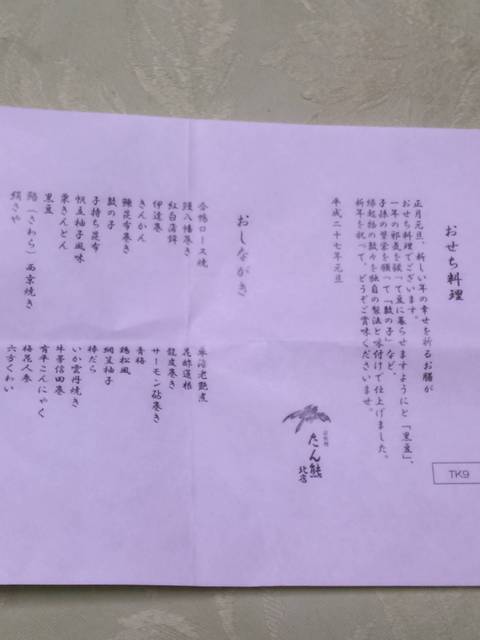 おせち料理
正月元旦、新しい年の幸せを祈るお膳が
おせち料理でございます。
一年の邪気を祓って豆に暮らせますようにと「黒豆」、
子孫の繁栄を願って「数の子」など、
縁起物の数々を独自の製法と味付けで仕上げました。
新年を祝って、どうぞご賞味くださいませ。
平成二十七年元旦
たん熊
北店
TK9
おしながき
合鴨ロース焼
鰻八幡巻き
紅白蒲鉾
伊達巻
きんかん
鰊昆布巻き
数の子
子持ち昆布
帆立柚子風味
栗きんとん
黒豆
鰆(さわら)西京焼き
絹さや
車海老艶煮
花酢蓮根
龍皮巻き
サーモン砧巻き
青梅
鶏松風
網笠柚子
棒だら
いか雲丹焼き
牛蒡信田巻
有平こんにゃく
梅花人参
六方くわい